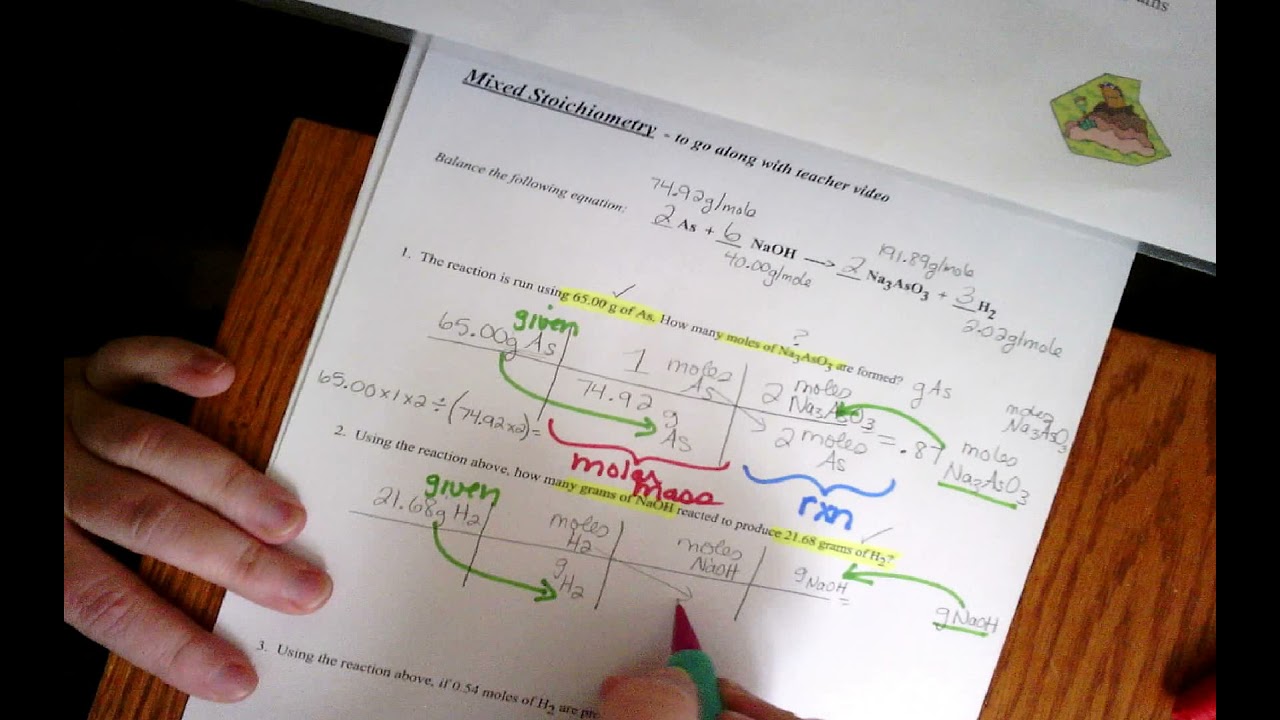 ams
Mixed Stoichiometry - to go along with teacher video
Balance the following equation:
74.92g/mole
2 As + 6 NaOH → 2 Na₃AsO₃ + 3 H₂
40.00g/mole
191.89g/mole
2.02g/mole
1. The reaction is run using 65.00 g of As. How many moles of Na₃AsO₃ are formed?
given
?
65.00g As
1 moles As
2 moles Na₃AsO₃
g As
74.92 g As
2 moles As
= .87 moles Na₃AsO₃
moles Na₃AsO₃
65.00×1×2÷(74.92×2)=
molar mass
rxn
2. Using the reaction above, how many grams of NaOH reacted to produce 21.68 grams of H₂?
given
21.68g H₂
moles H₂
moles NaOH
g NaOH
=
g NaOH
g H₂
3. Using the reaction above, if 0.54 moles of H₂ are